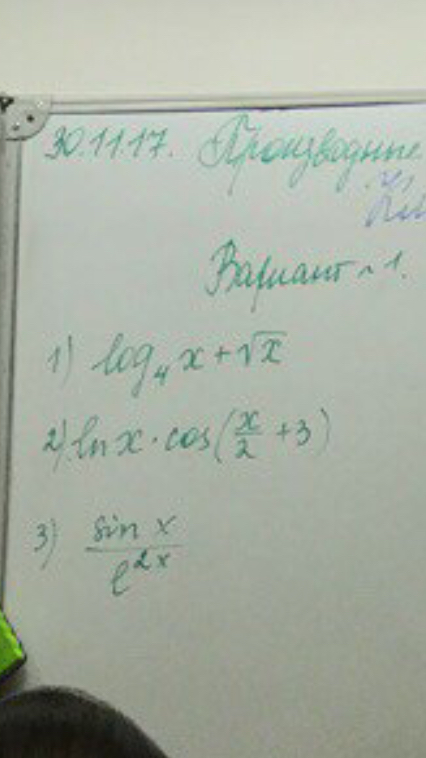 30.11.17. Производные
Вариант ~ 1.
1) log₄ x + √x
2) ln x · cos(x/2 + 3)
3) sin x / e^2x